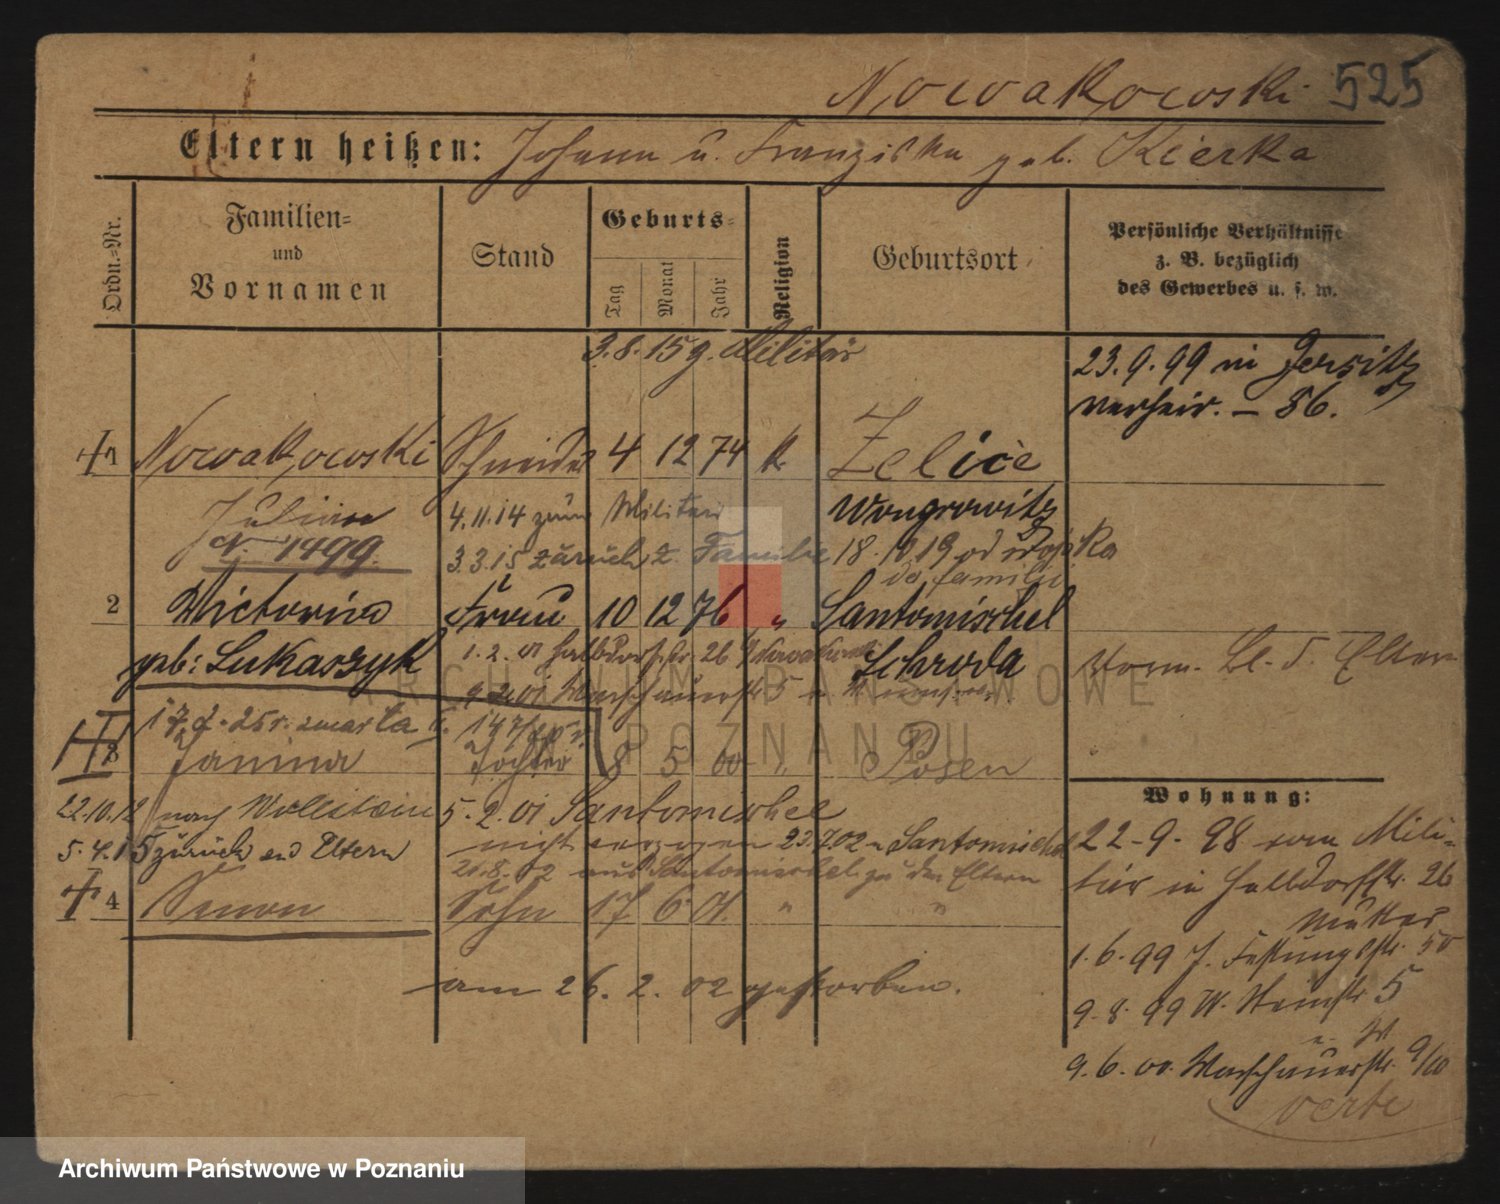 Nowakowski 525
Eltern heißen: Johann u. Franziska geb. Kierka
Ordn.=Nr.
Familien= und Vornamen
Stand
Geburts=
Tag Monat Jahr
Religion
Geburtsort
Persönliche Verhältnisse
z. B. bezüglich
des Gewerbes u. s. w.
3.8.15 g. Militär
23.9.99 in Jersitz
verheir. – 86.
1 Nowakowski Schneider 4 12 74 k. Zelice
Julian 4.11.14 zum Militär Wongrowitz
1499. 3.3.15 zurück z. Familie 18. 19 od wojska
do familii
2 Victoria Frau 10 12 76 " Santomischel
geb: Lukaszyk 1.2.01 Halbdorfstr. 26 Schroda
Warschauerstr 5
Eltern
17.7.25 r. zmarła
3 Janina Tochter 8 5 00 " Posen
22.10.12 nach Wollstein 5.2.01 Santomischel
5.4.15 zurück Eltern nicht 23.7.02 n Santomischel
21.8.02 aus Santomischel zu den Eltern
4 Zenon Sohn 17 6 01. " "
am 26.2.02 gestorben.
Wohnung:
22-9-98 vom Mili-
tär in Halbdorfstr. 26
Mutter
1.6.99 J. Festungsstr. 50
9.8.99 W. 5
W
9.6.00. Warschauerstr. 9/10
verte
ARCHIWUM PAŃSTWOWE
W POZNANIU
Archiwum Państwowe w Poznaniu